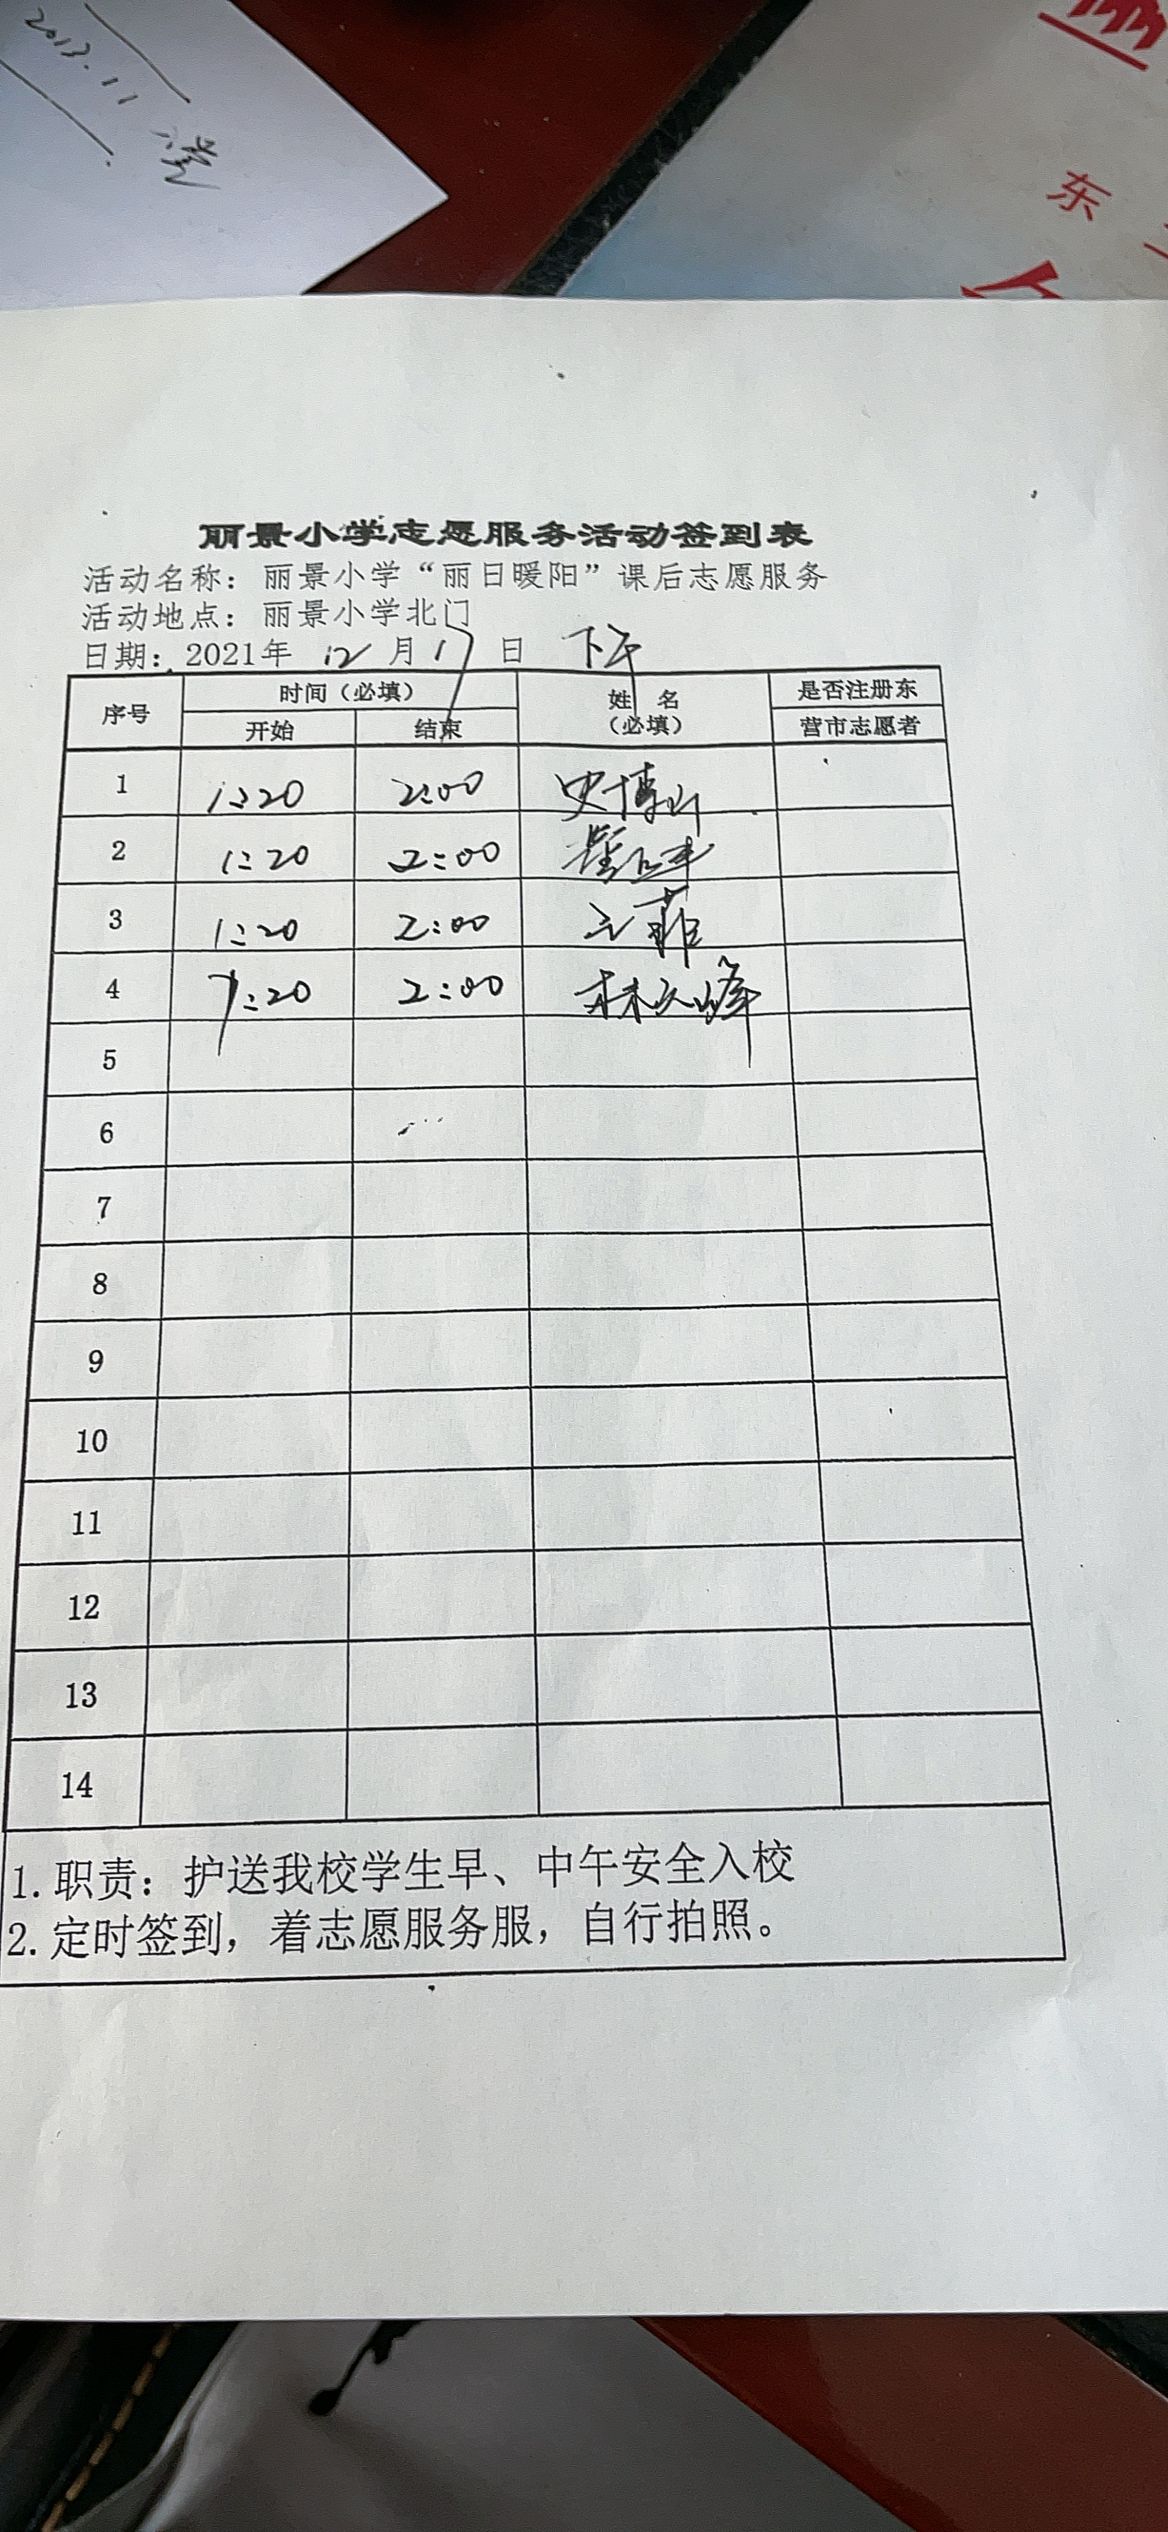 2013.11
东
丽景小学志愿服务活动签到表
活动名称：丽景小学“丽日暖阳”课后志愿服务
活动地点：丽景小学北门
日期：2021年 12 月 17 日 下午
序号 时间（必填） 姓 名（必填） 是否注册东营市志愿者
开始 结束
1 1:20 2:00 史博山
2 1:20 2:00
3 1:20 2:00 王菲
4 1:20 2:00 林久峰
5
6
7
8
9
10
11
12
13
14
1.职责：护送我校学生早、中午安全入校
2.定时签到，着志愿服务服，自行拍照。